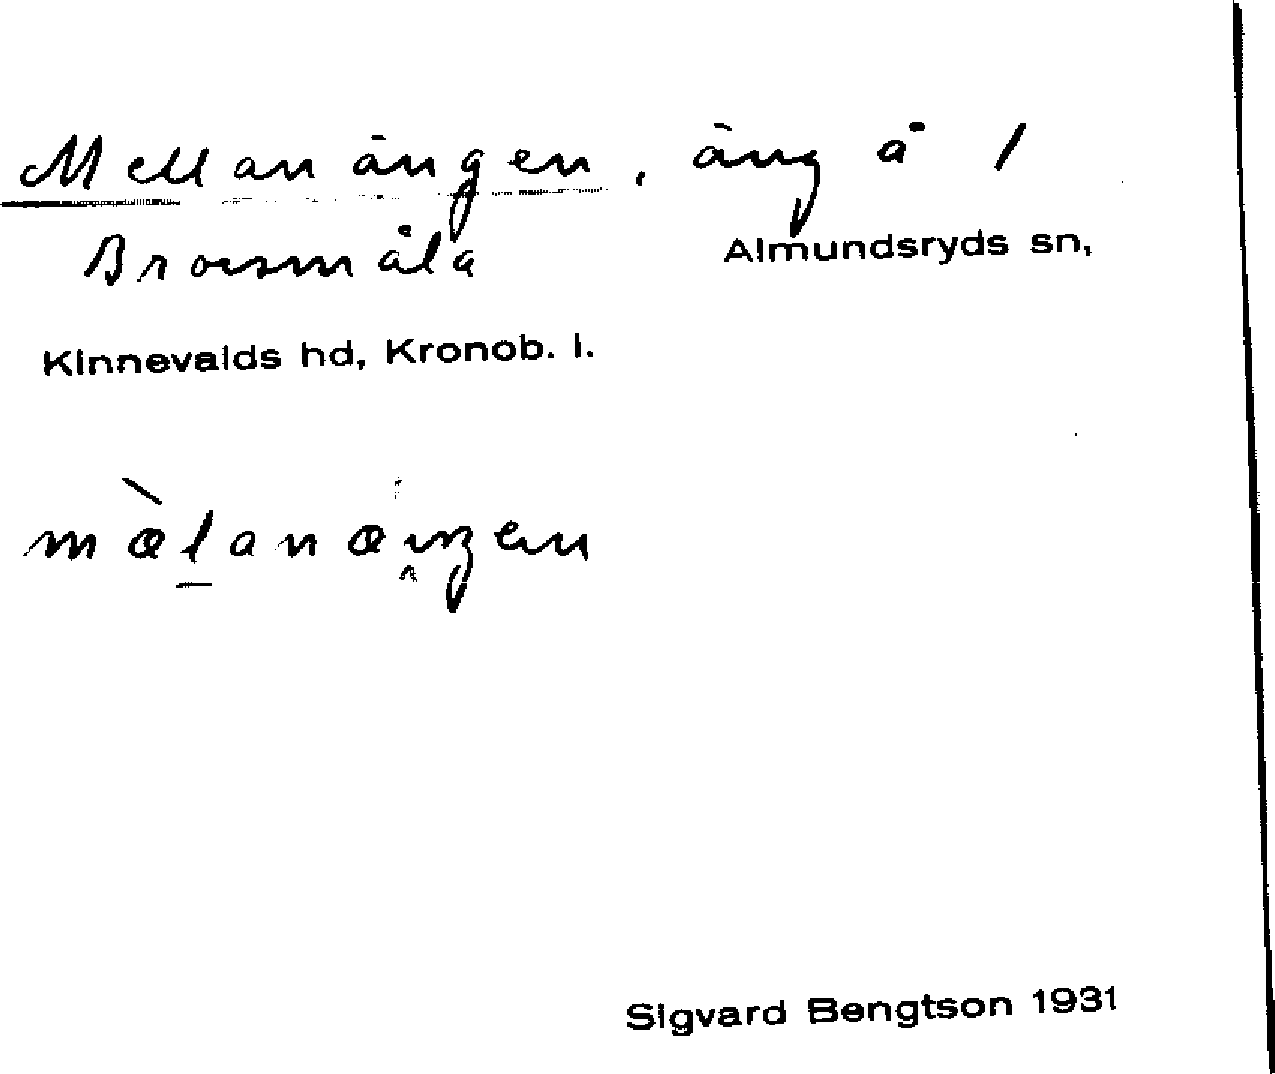 Mellanängen, äng å 1
Broesmåla
Almundsryds sn,
Kinnevalds hd, Kronob. l.
mæ̀l̲anæŋen
Sigvard Bengtson 1931